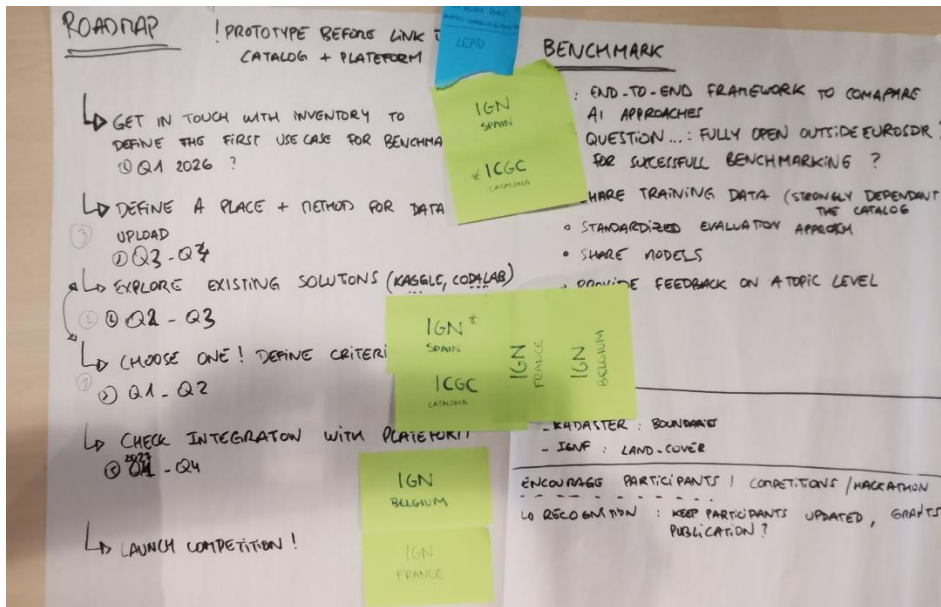 ROADMAP
! PROTOTYPE BEFORE LINK
CATALOG + PLATEFORM
LEAD
↳ GET IN TOUCH WITH INVENTORY TO
DEFINE THE FIRST USE CASE FOR BENCHMA
① Q1 2026 ?
IGN
SPAIN
* ICGC
CATALONIA
↳ DEFINE A PLACE + METHOD FOR DATA
UPLOAD
③ Q3 - Q4
↳ EXPLORE EXISTING SOLUTONS (KAGGLE, CODALAB)
② Q2 - Q3
↳ CHOOSE ONE! DEFINE CRITERI
Q1 - Q2
IGN *
SPAIN
ICGC
CATALONIA
IGN
FRANCE
IGN
BELGIUM
↳ CHECK INTEGRATON WITH PLATEFORM
2027
- Q4
IGN
BELGIUM
↳ LAUNCH COMPETITION !
IGN
FRANCE
BENCHMARK
: END-TO-END FRAMEWORK TO COMAPARE
AI APPROACHES
QUESTION...: FULLY OPEN OUTSIDE EUROSDR ?
FOR SUCESSFULL BENCHMARKING ?
SHARE TRAINING DATA (STRONGLY DEPENDANT
THE CATALOG
• STANDARDIZED EVALUATION APPROCH
• SHARE MODELS
• PROVIDE FEEDBACK ON A TOPIC LEVEL
- KADASTER : BOUNDARIES
- IGNF : LAND-COVER
ENCOURAGE PARTICIPANTS ! COMPETITIONS / HACKATHON
↳ RECOGNITION : KEEP PARTICIPANTS UPDATED, GRANTS
PUBLICATION ?